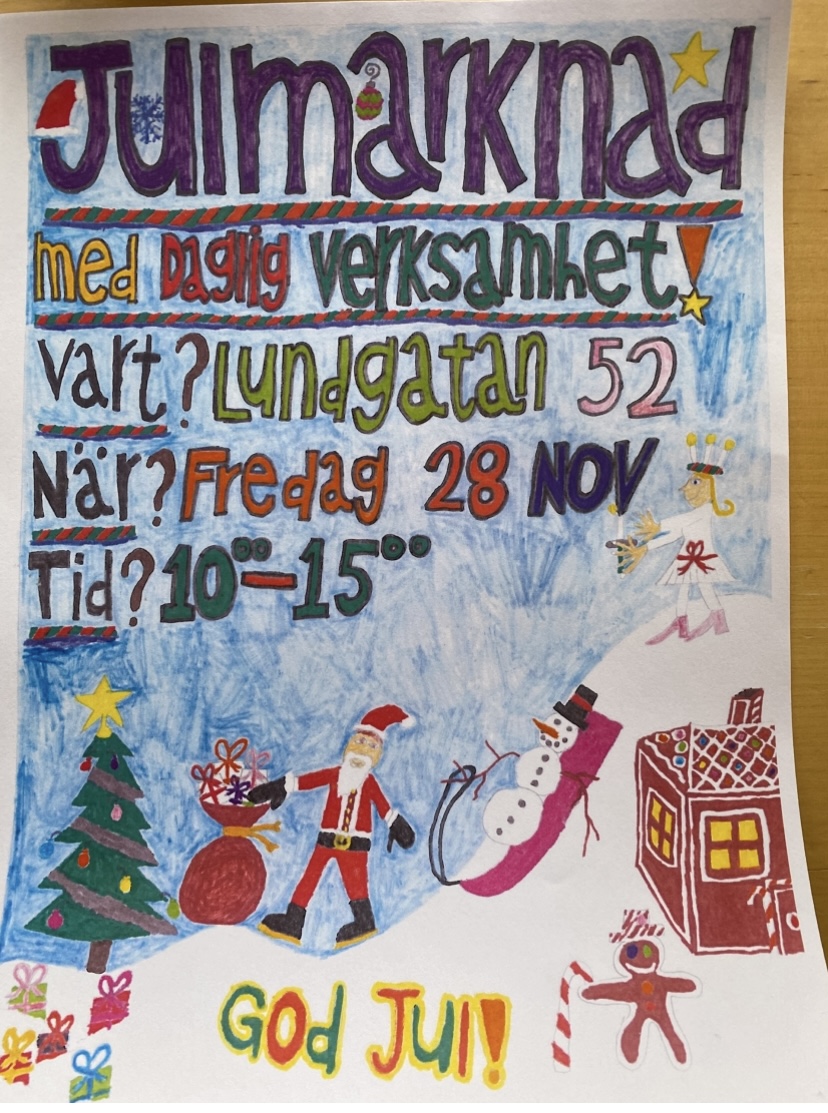 Julmarknad
med Daglig verksamhet!
Vart? Lundgatan 52
När? Fredag 28 NOV
Tid? 10⁰⁰-15⁰⁰
GOD JUL!